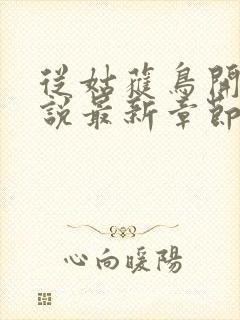 從姑蒦鳥開
說最新章節
心向暖陽